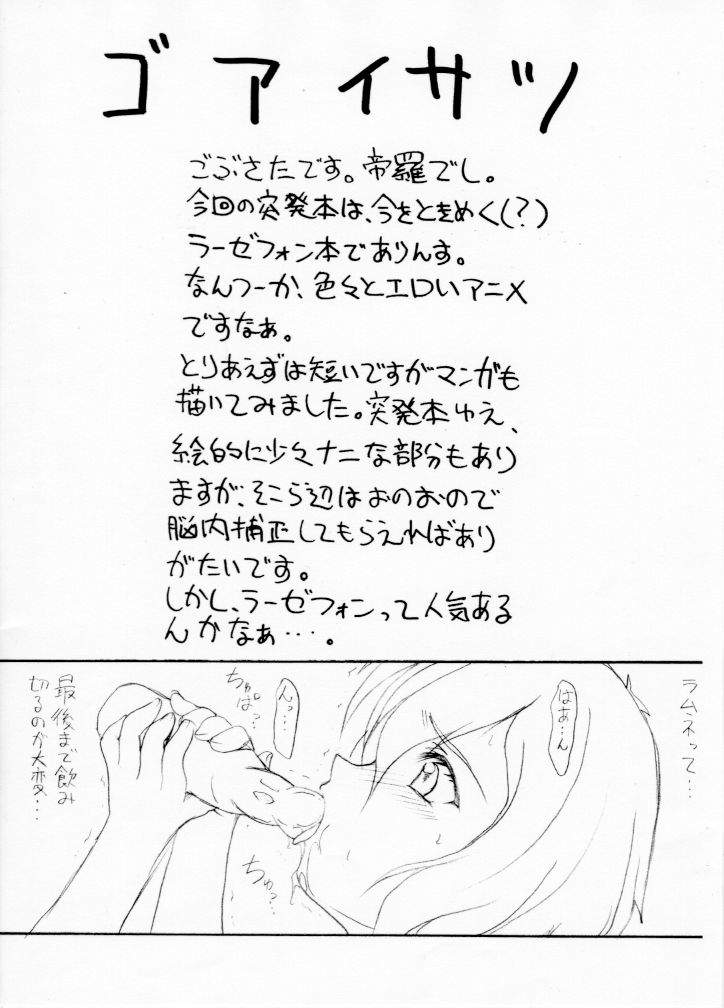 ゴアイサツ
ごぶさたです。帝羅でし。
今回の突発本は、今をときめく(?)
ラーゼフォン本でありんす。
なんつーか、色々とエロいアニメ
ですなぁ。
とりあえずは短いですがマンガも
描いてみました。突発本ゆえ、
絵的に少々ナニな部分もあり
ますが、そこら辺はおのおので
脳内補正してもらえればあり
がたいです。
しかし、ラーゼフォンって人気ある
んかなぁ…。
ラムネって…
はあ…ん
んっ…
ちゅぱっ…
ちゅっ…
最後まで飲み
切るのが大変…